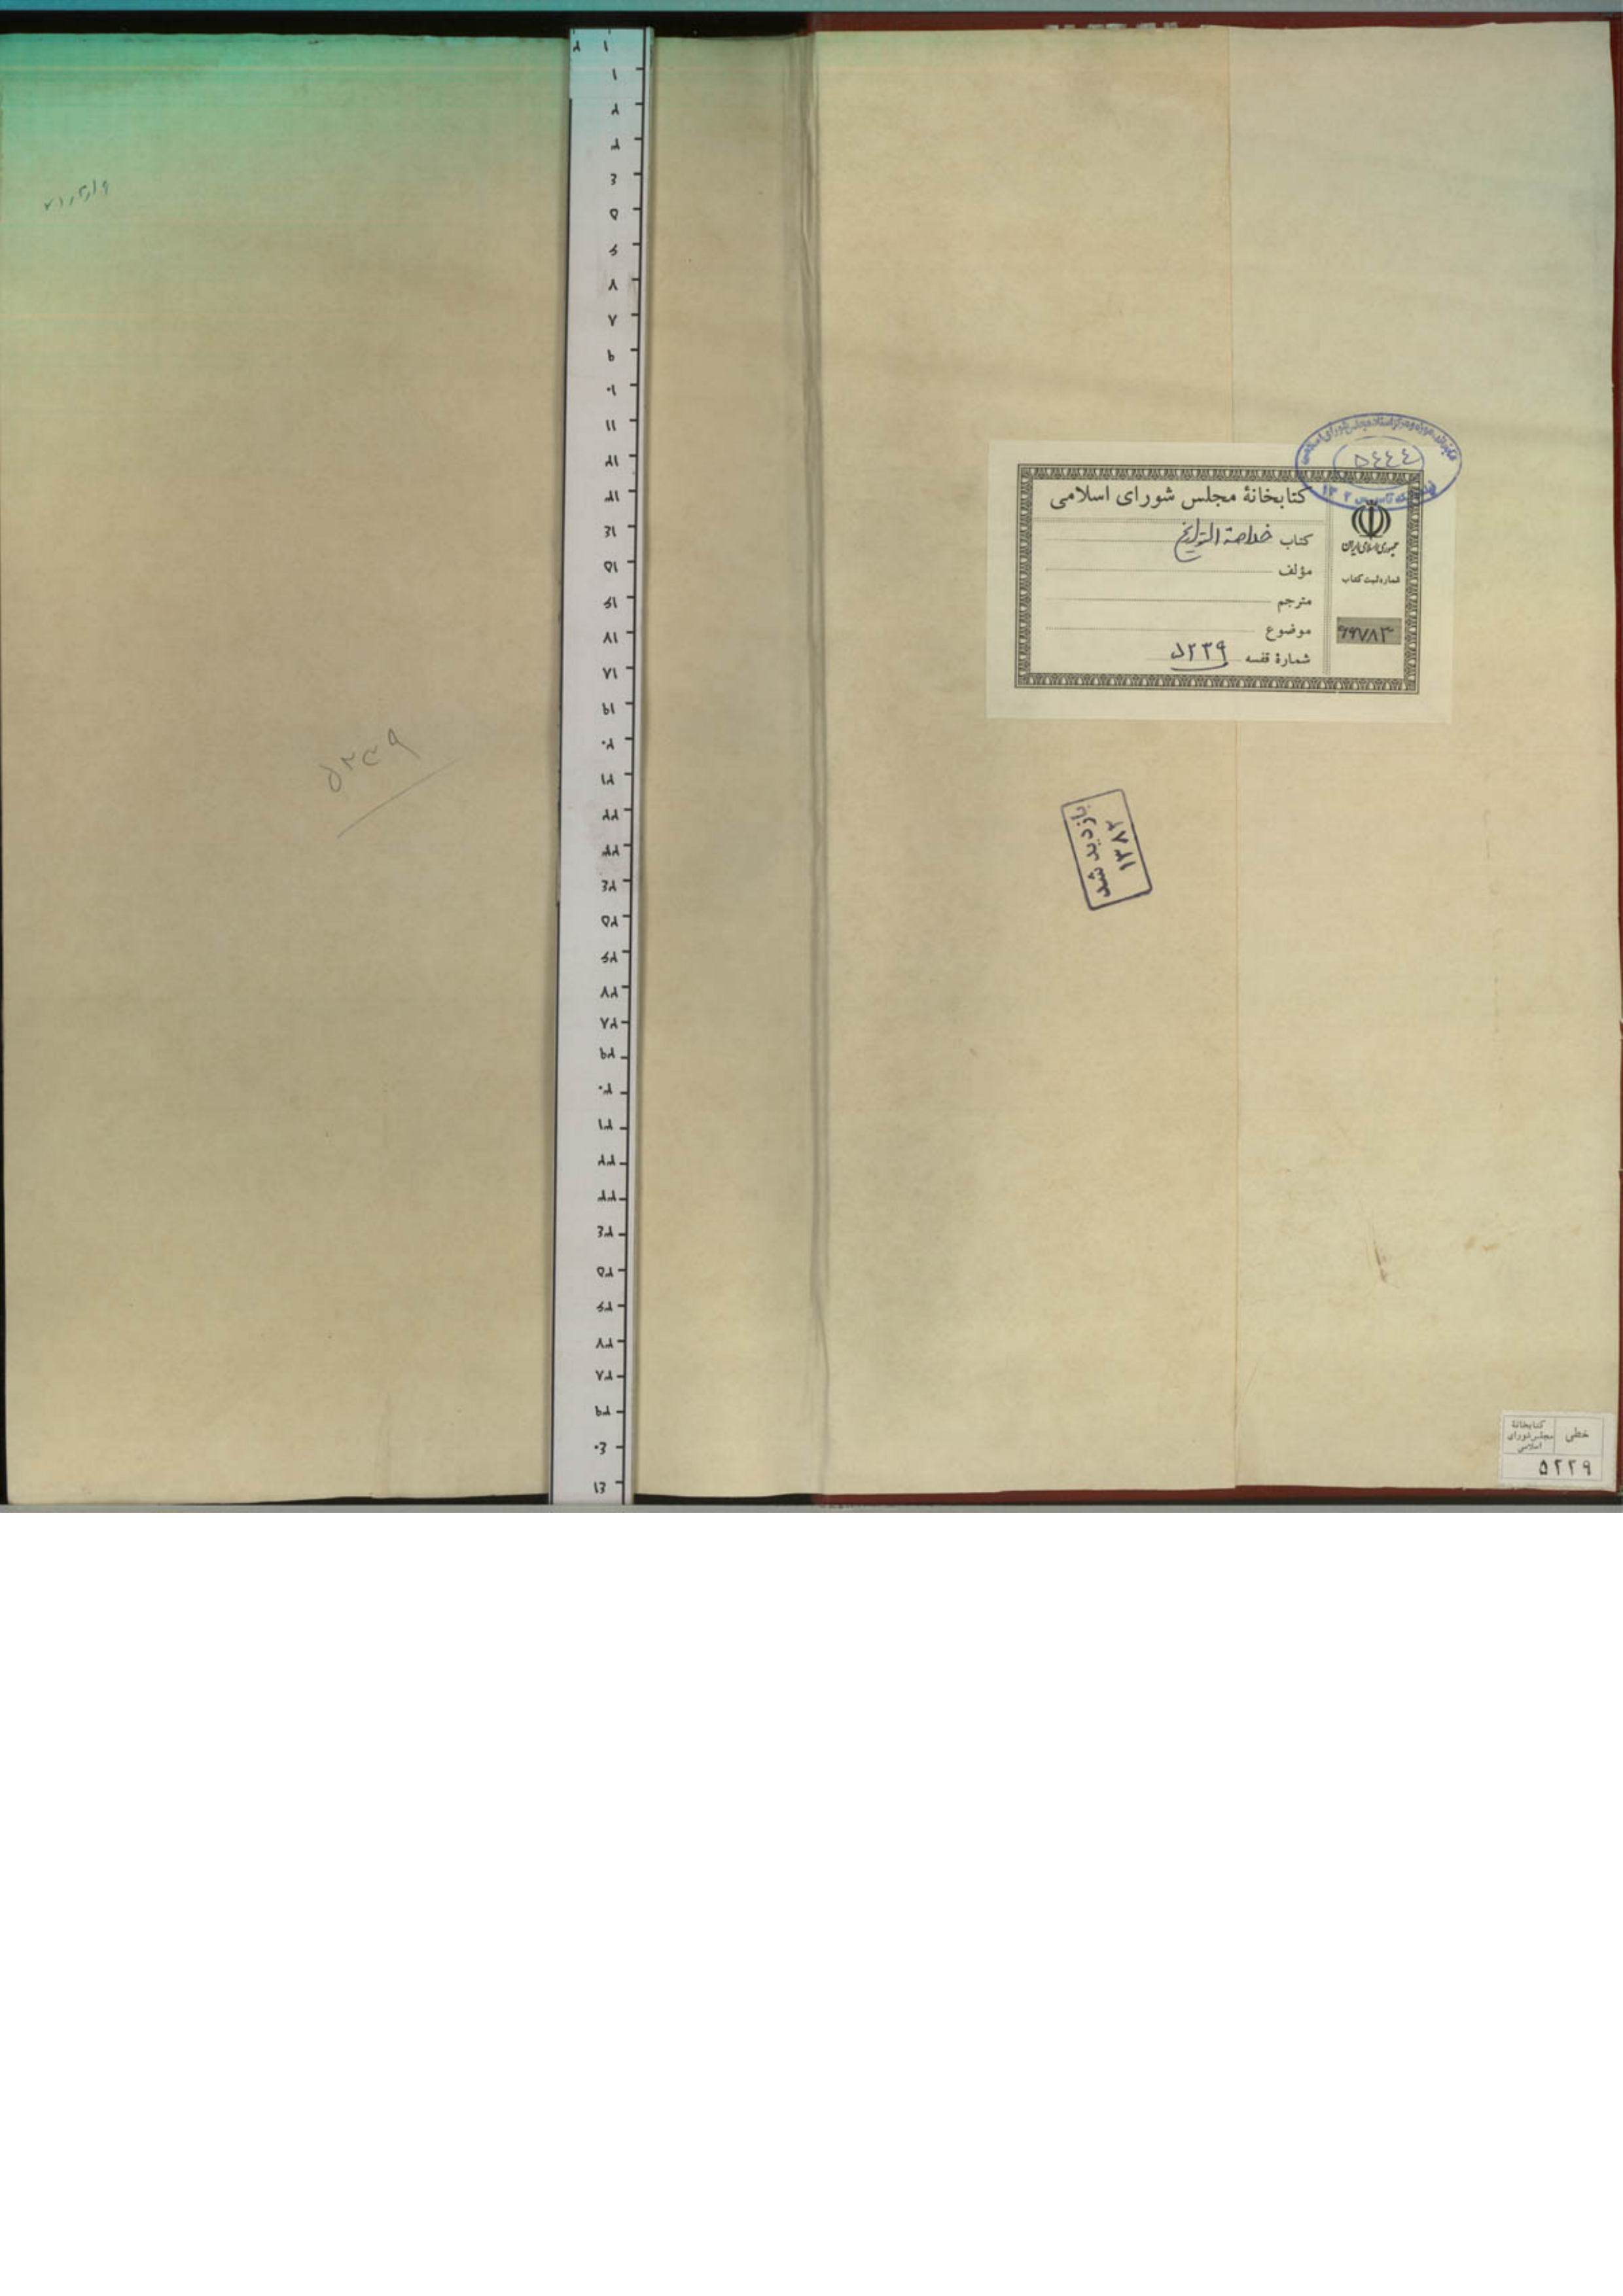 کتابخانهٔ مجلس شورای اسلامی
کتاب خلاصة التواریخ
مؤلف
مترجم
موضوع
شمارهٔ قفسه ۵۲۳۹
جمهوری اسلامی ایران
شماره ثبت کتاب
۹۹۷۸۳
۵۴۴۴
بازدید شد
۱۳۸۲
۵۲۳۹
خطی
کتابخانهٔ
مجلس شورای
اسلامی
۵۲۳۹